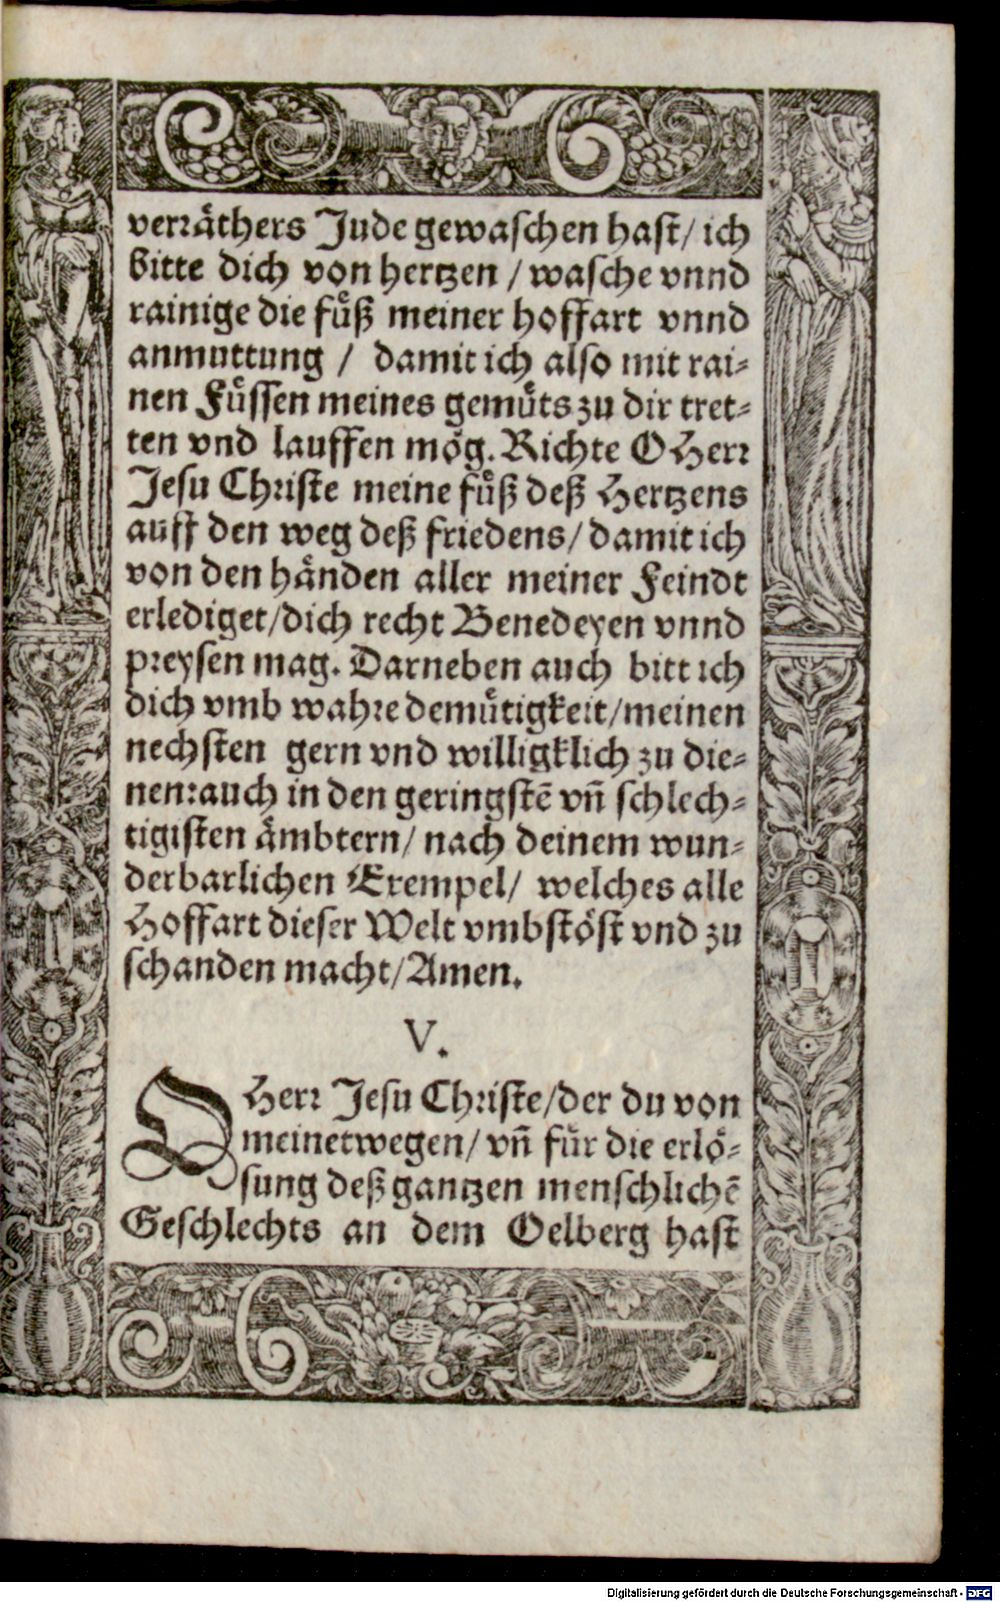 verräthers Jude gewaschen hast/ ich
bitte dich von hertzen / wasche vnnd
rainige die füß meiner hoffart vnnd
anmuttung / damit ich also mit rai-
nen Füssen meines gemüts zu dir tret-
ten vnd lauffen mög. Richte O Herr
Jesu Christe meine füß deß Hertzens
auff den weg deß friedens/ damit ich
von den händen aller meiner Feindt
erlediget/dich recht Benedeyen vnnd
preysen mag. Darneben auch bitt ich
dich vmb wahre demütigkeit/meinen
nechsten gern vnd willigklich zu die-
nen:auch in den geringstē vñ schlech-
tigisten ämbtern/ nach deinem wun-
derbarlichen Exempel/ welches alle
Hoffart dieser Welt vmbstöst vnd zu
schanden macht/Amen.
V.
O Herr Jesu Christe/der du von
meinetwegen/ vñ für die erlö-
sung deß gantzen menschlichē
Geschlechts an dem Oelberg hast
Digitalisierung gefördert durch die Deutsche Forschungsgemeinschaft - DFG